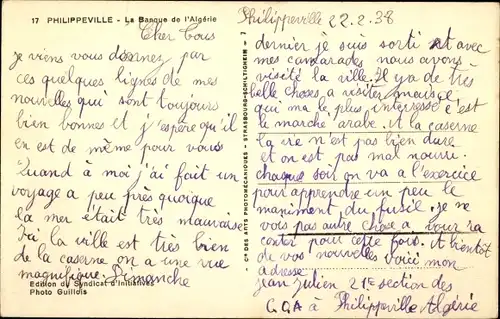 17 PHILIPPEVILLE - La Banque de l'Algérie
Cher tous
je viens vous donnez par
ces quelques lignes de mes
nouvelles qui sont toujours
bien bonnes et j'espère qu'il
en est de même pour vous
Quand à moi j'ai fait un
voyage a peu près quoique
la mer était très mauvaise
Ici la ville est très bien
de la caserne on a une vue
magnifique. Dimanche
Edition du Syndicat d'Initiatives
Photo Guillois
Cie DES ARTS PHOTOMÉCANIQUES - STRASBOURG-SCHILTIGHEIM
Philippeville 22.2.38
dernier je suis sorti et avec
mes camarades nous avons
visité la ville. Il y a de très
belle choses a visiter
qui m'a le plus interessé c'est
le marché arabe. A la caserne
la vie n'est pas bien dure
et on est pas mal nourri.
chaque soir on va a l'exercice
pour apprendre un peu le
maniment du fusil. je ne
vous pas autre chose a vous ra
conter pour cette fois. A bientôt
de vos nouvelles voici mon
adresse
Jean Julien 21e section des
à Philippeville Algérie